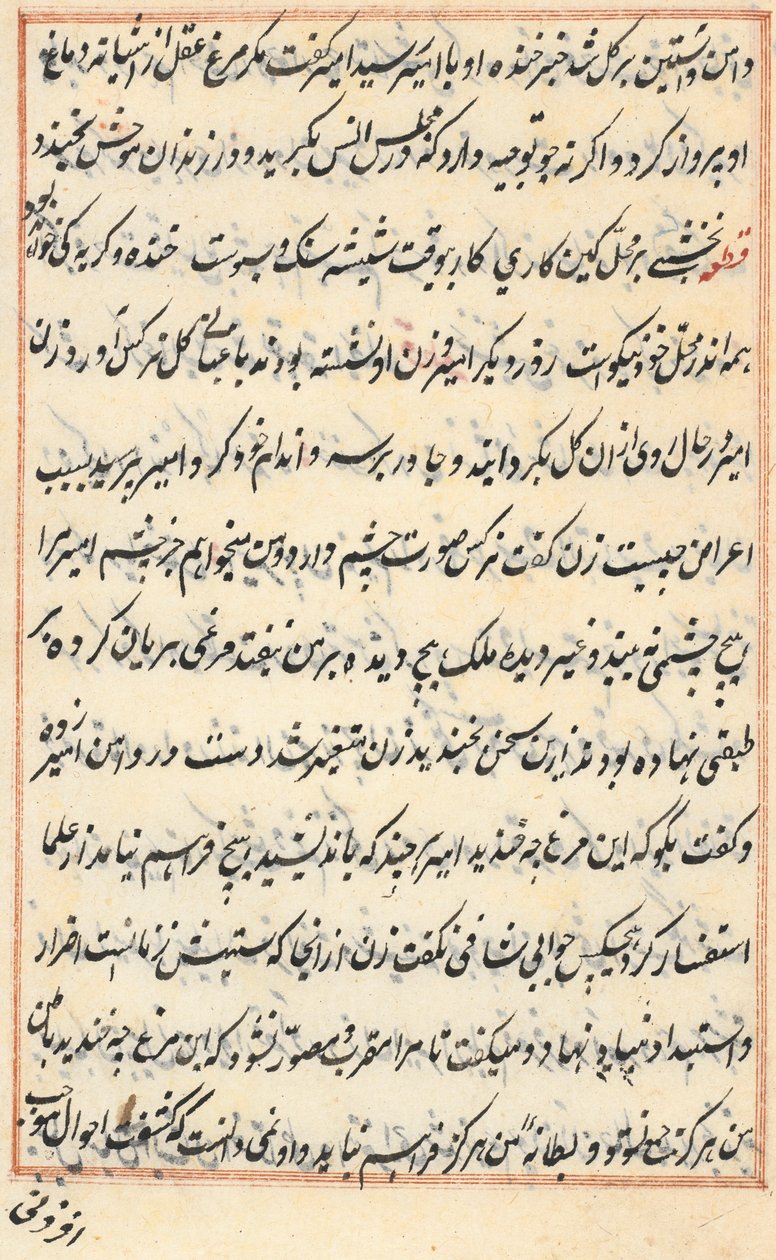 دامن و آستین پر گل شد خبر خنده او با امیر رسید امیر گفت مگر مرغ عقل از آشیانه دماغ
او پرواز کرد و اگر نه چو توجیه دارد که در مجلس انس بگرید و در زندان موحش بخندد
قطعه نخشبی بر محل کین کاری کار بیوقت شیشه سنک و سبوست خنده و کریه کی خوش بود
همه اندر محل خود نیکوست روز دیکر امیر و زن او نشسته بودند باغبانی کل نرکس آورد زن
امیر در حال روی ازان کل بکردانید و چادر بر سر و اندام خود کرد امیر پرسید سبب
اعراض چیست زن کفت نرکس صورت چشم دارد و من میخواهم جز چشم امیر مرا
هیچ چشمی نه بیند و غیر دیده ملک هیچ دیده بر من نیفتد مرغی بریان کرده بر
طبقی نهاده بودند ازین سخن بخندید زن متغیر شد دست در دامن امیر زده
و کفت بکو که این مرغ چه خندید امیر هر چند که باندیشید هیچ فراهم نیامد از علما
استفسار کرد هیچکس جوابی شافی نکفت زن ازانجا که ستیزش زنانست اضرار
و استبداد بنیاد نهاد و میکفت تا مرا مقرر و مصور نشود که این مرغ چه خندید باطن
من هرکز جمع نشود و بطانه من هرکز فراهم نیاید و او نمی دانست که کشف احوال موجب
افزونی